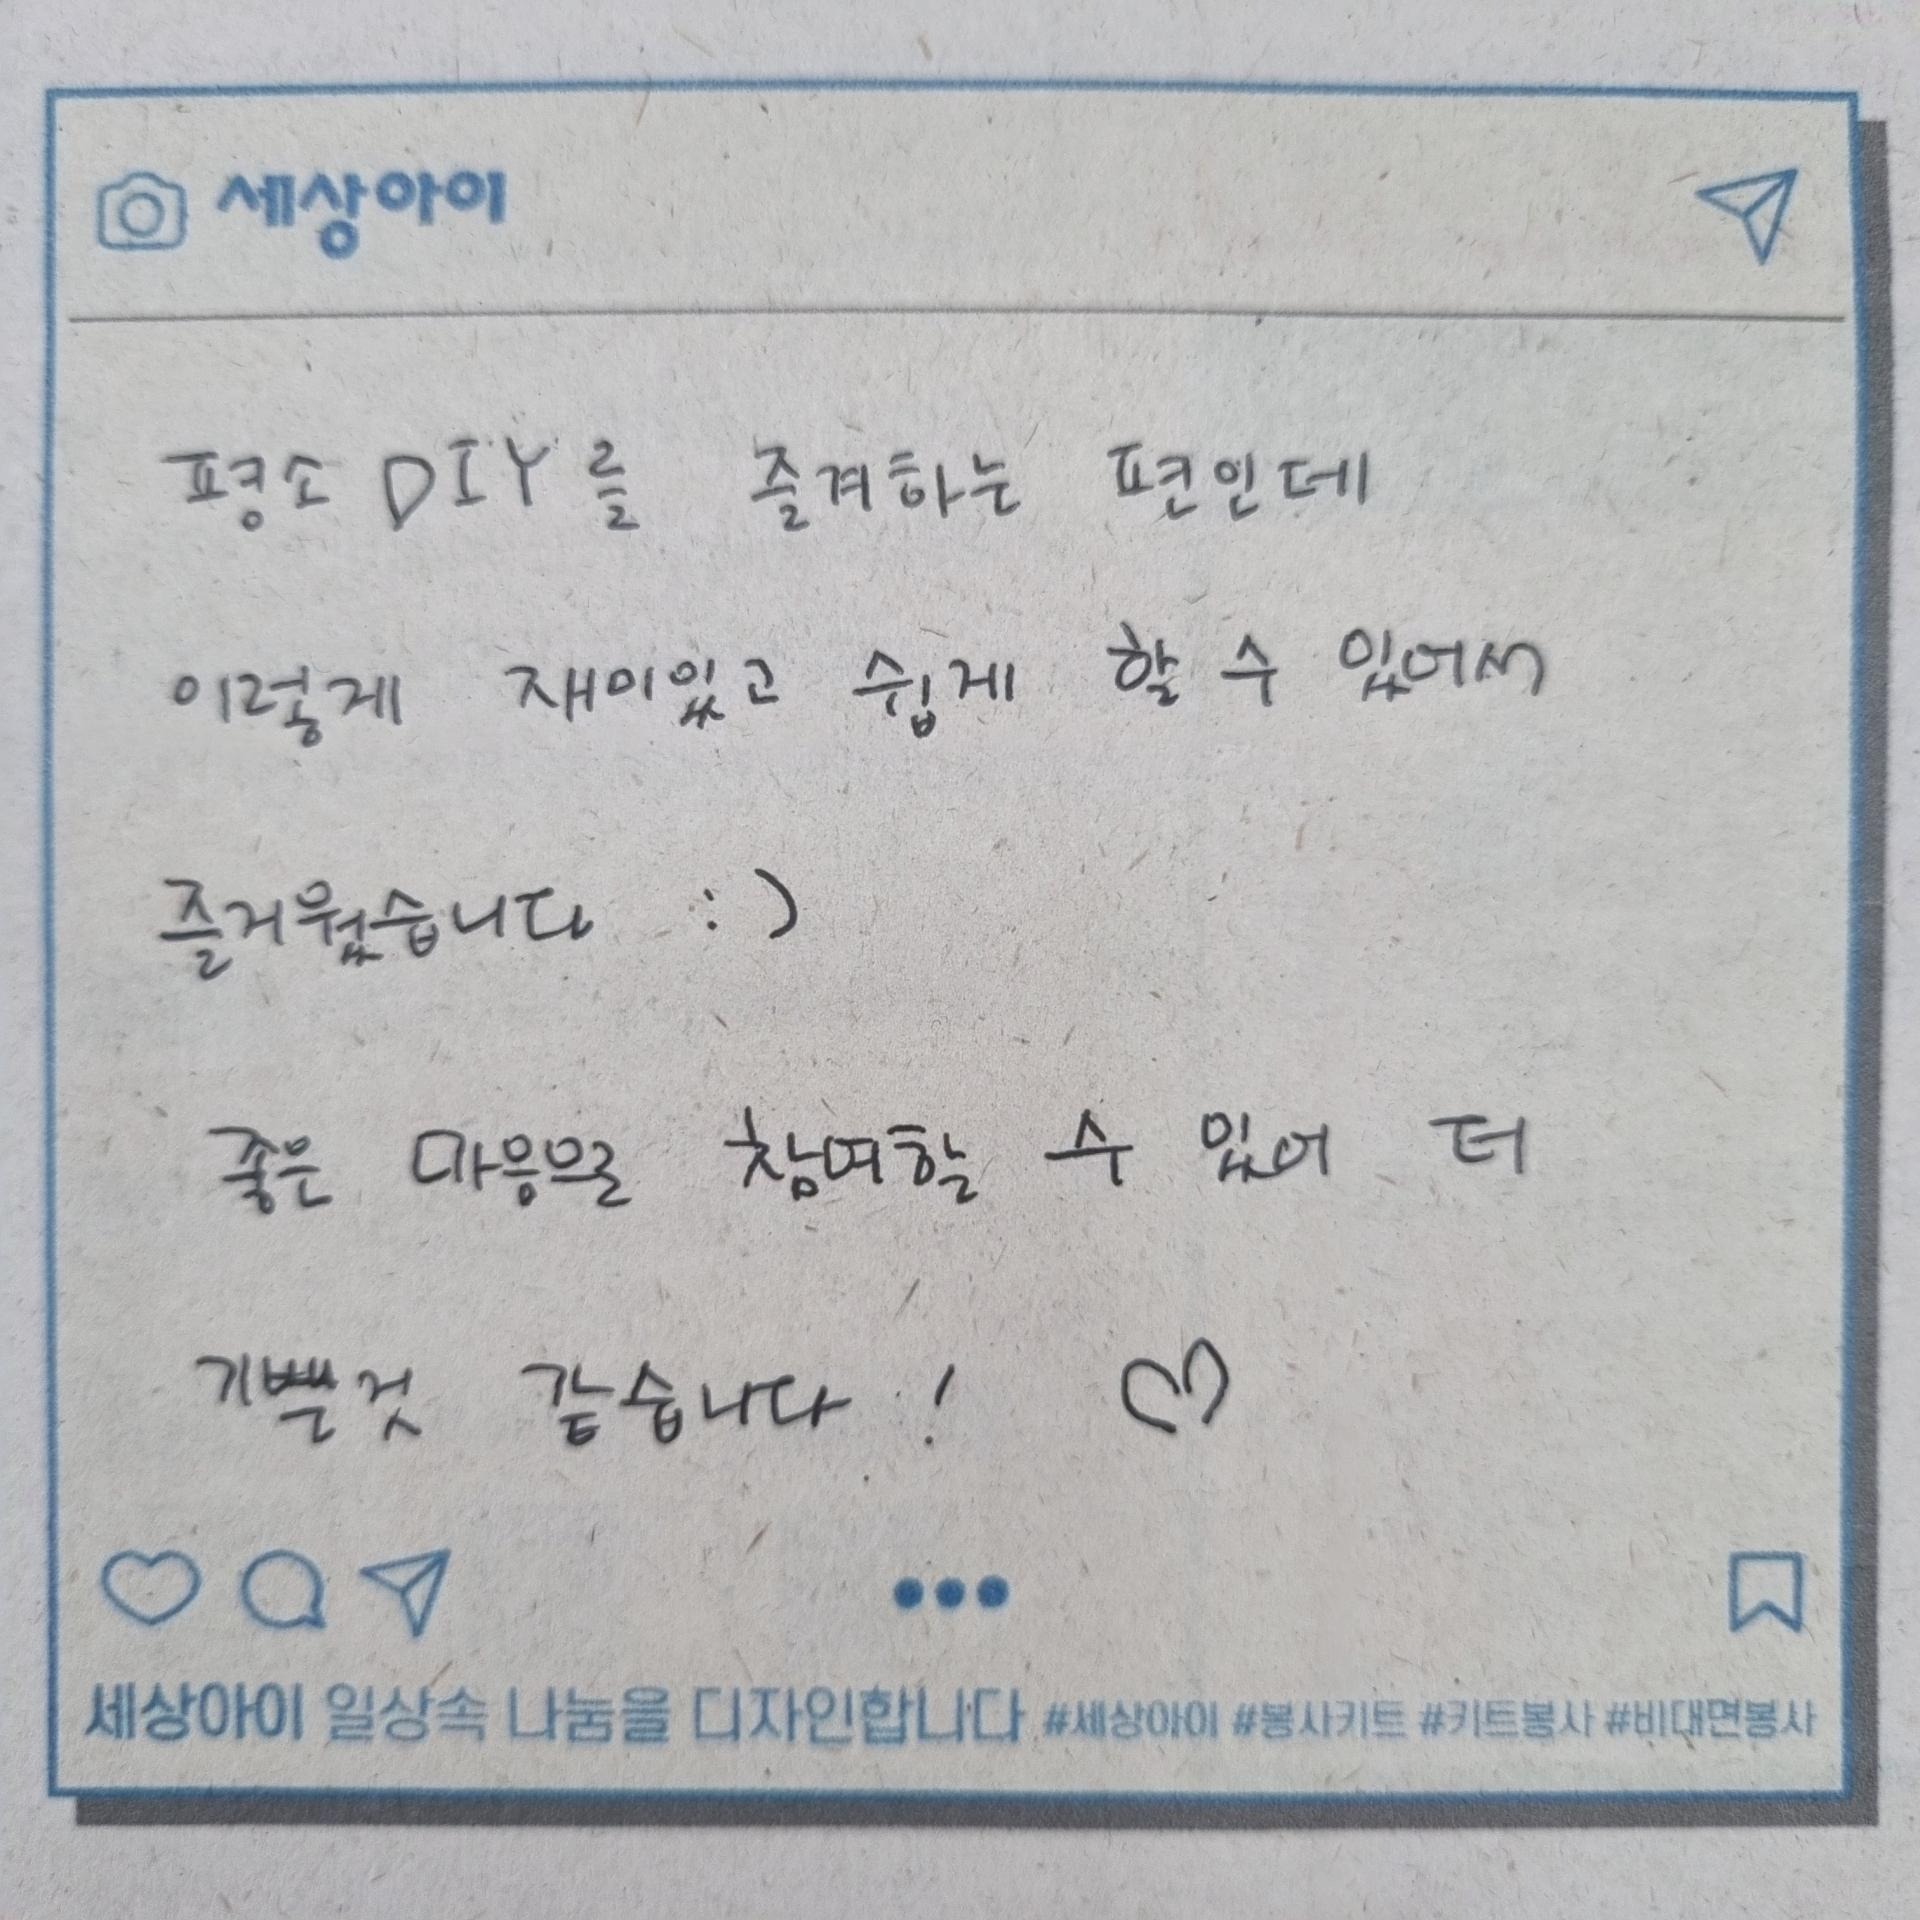 세상아이
평소 DIY를 즐겨하는 편인데
이렇게 재미있고 쉽게 할 수 있어서
즐거웠습니다 :)
좋은 마음으로 참여할 수 있어 더
기쁜것 같습니다! ♡
세상아이 일상속 나눔을 디자인합니다 #세상아이 #봉사키트 #키트봉사 #비대면봉사